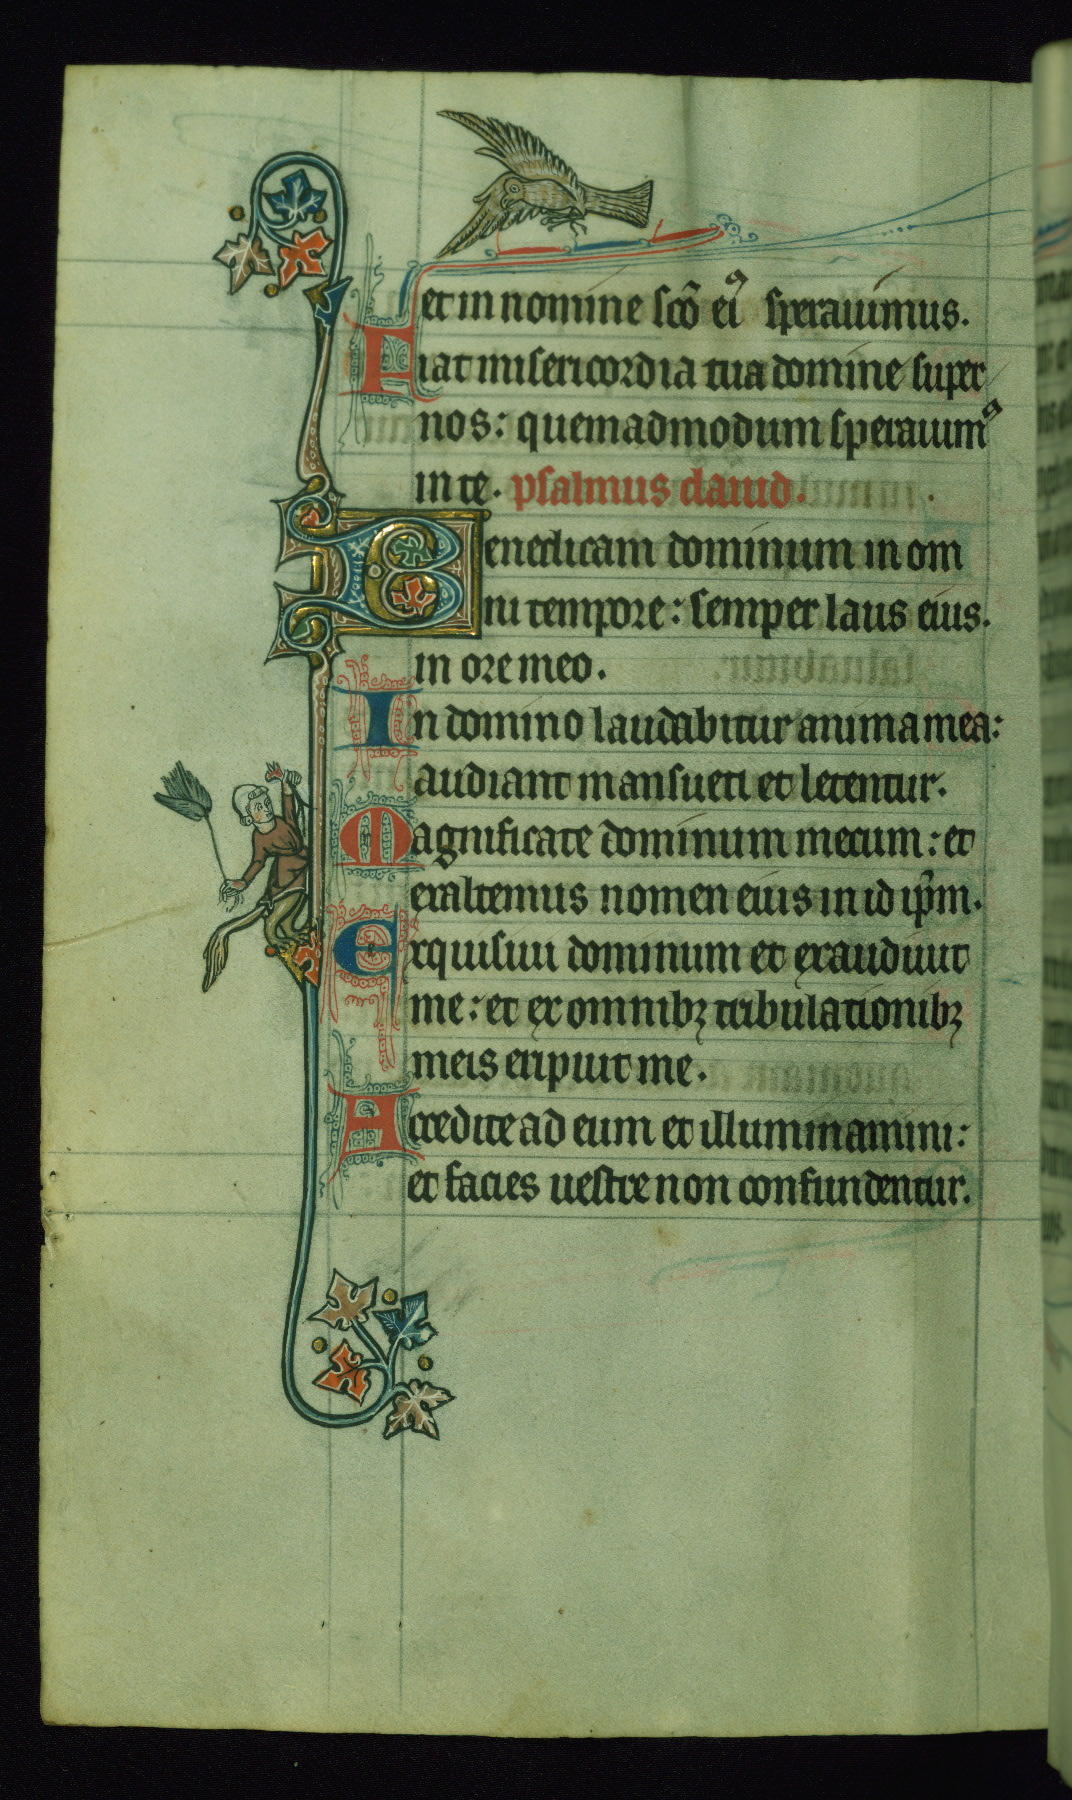 et in nomine scō eiꝰ sperauimus.
Fiat misericordia tua domine super
nos: quemadmodum sperauimꝰ
in te. psalmus dauid.
Benedicam dominum in om
ni tempore: semper laus eius.
in ore meo.
In domino laudabitur anima mea:
audiant mansueti et letentur.
Magnificate dominum mecum: et
exaltemus nomen eius in id ip̄m.
Exquisiui dominum et exaudiuit
me: et ex omnibꝫ tribulationibꝫ
meis eripuit me.
Accedite ad eum et illuminamini:
et facies uestre non confundentur.